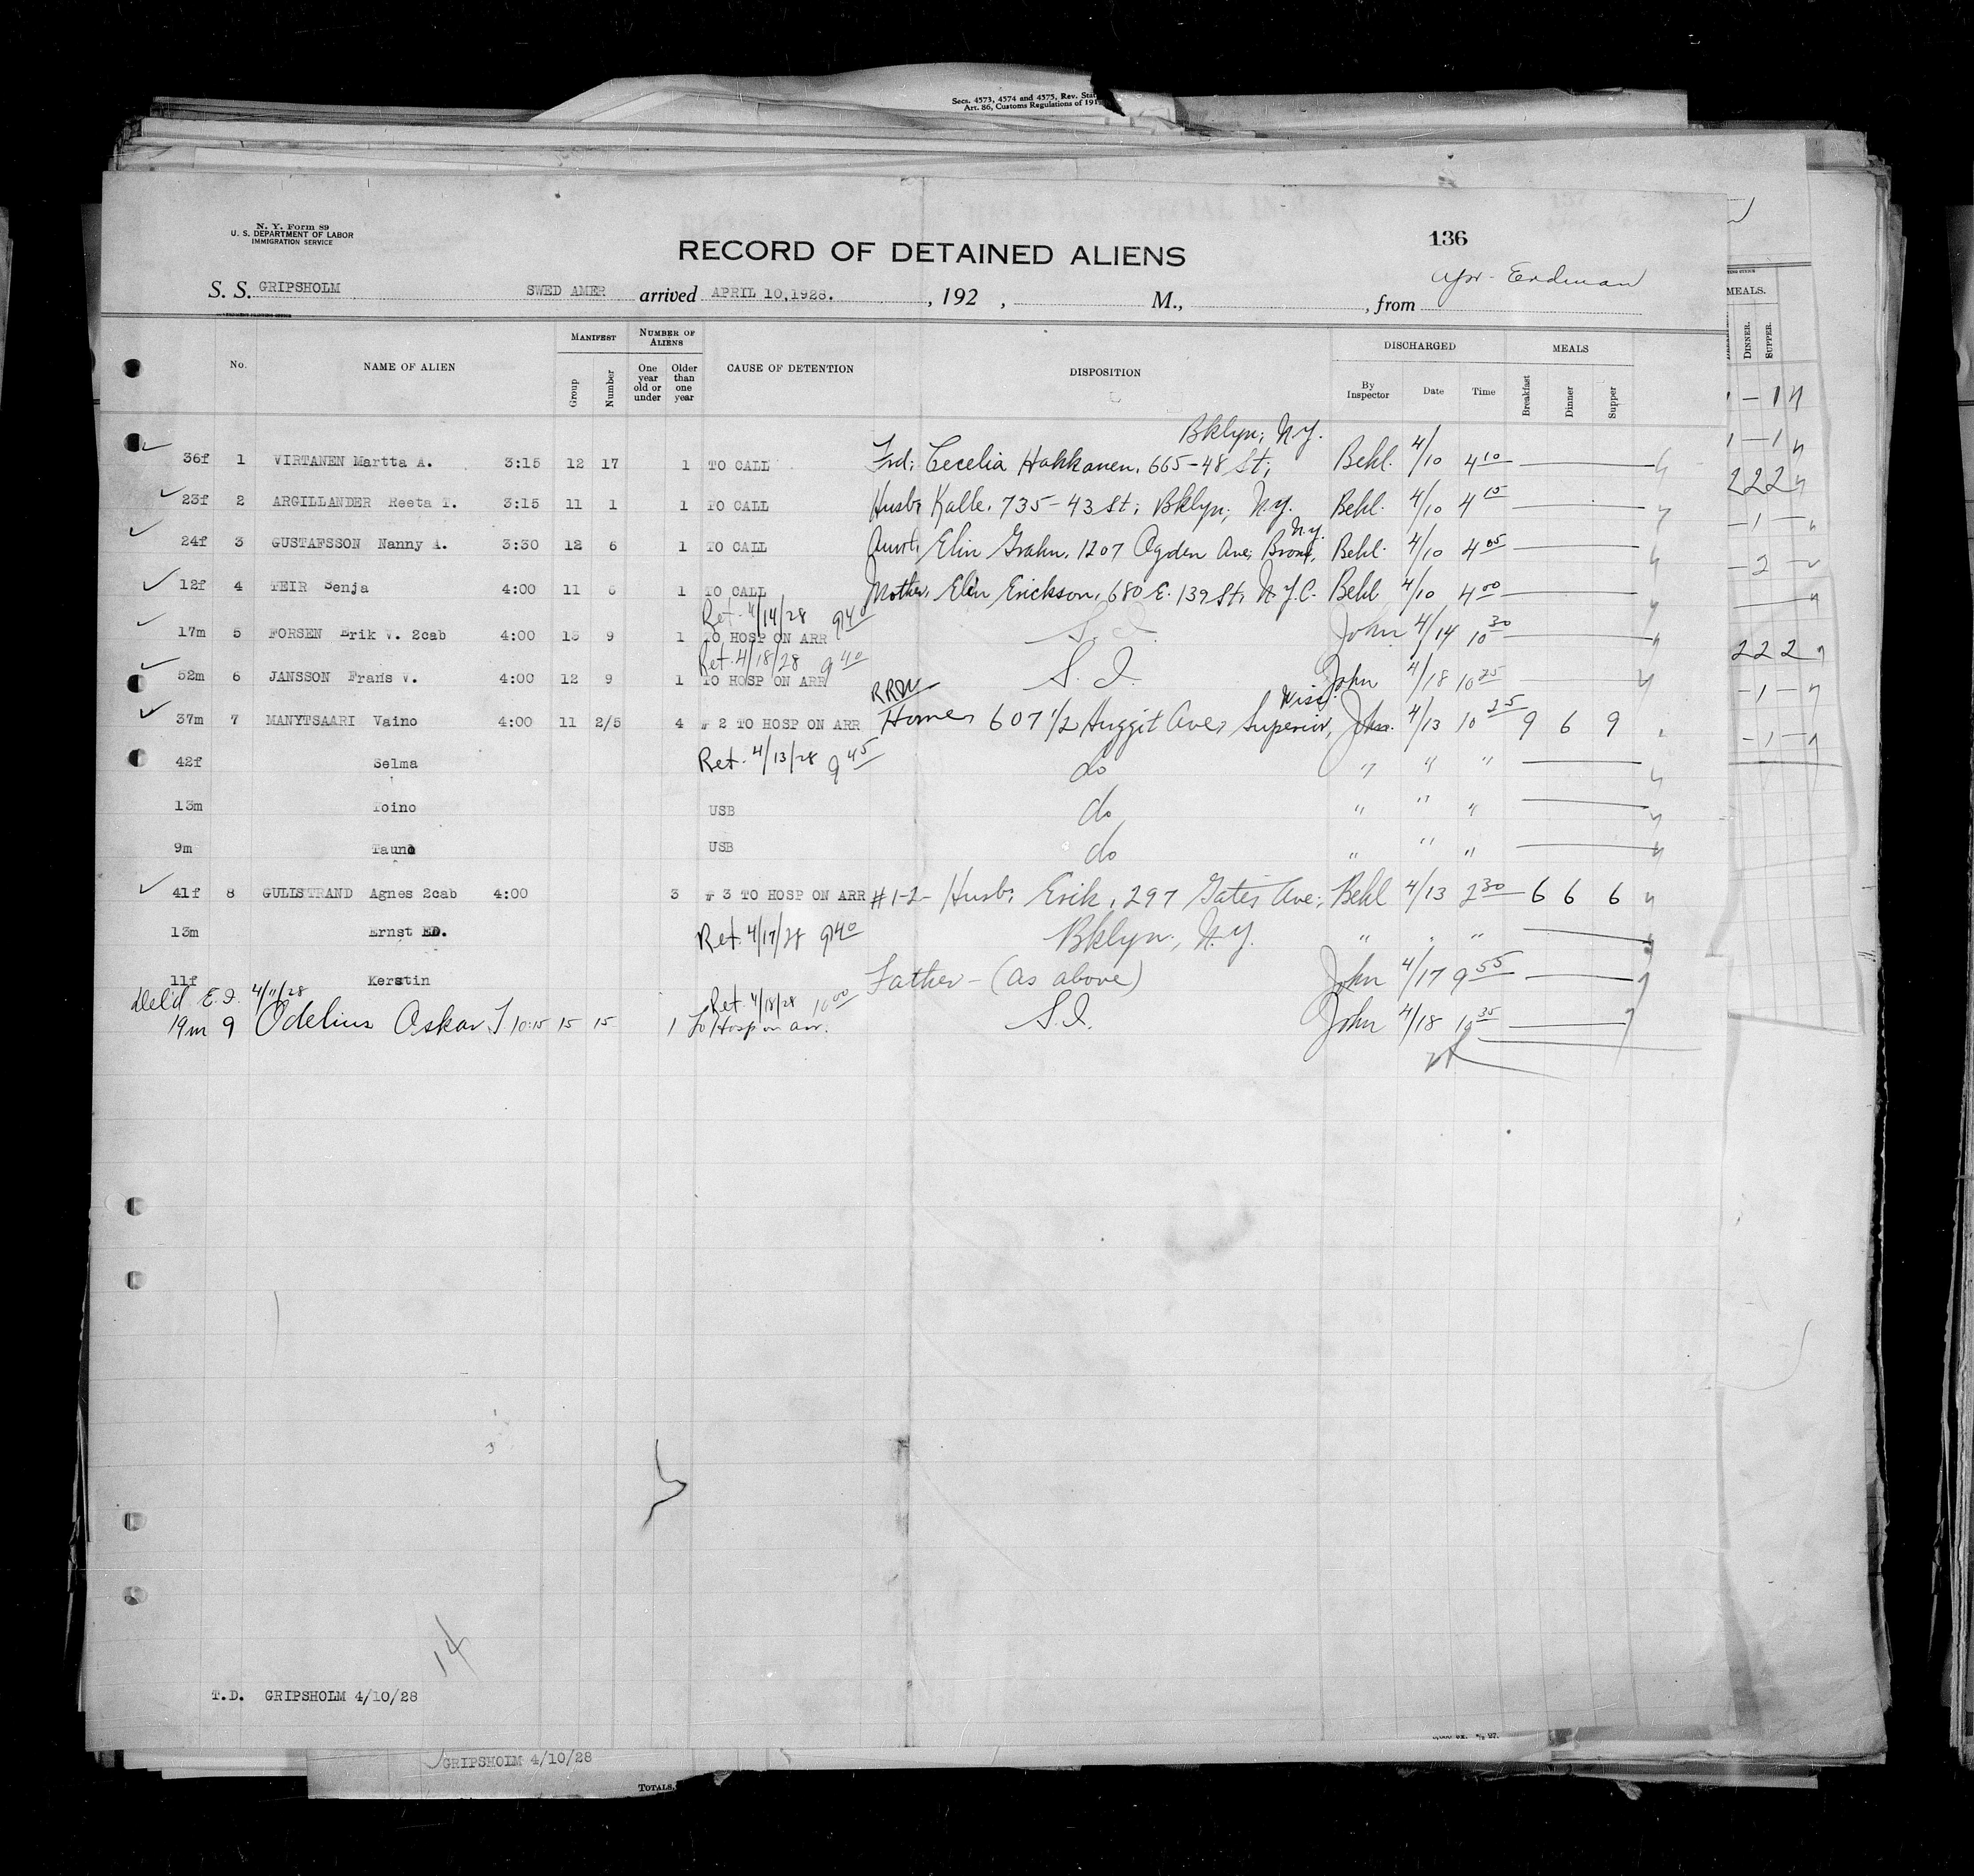 Secs. 4573, 4574 and 4575, Rev. Stat
Art. 86, Customs Regulations of 191
N. Y. Form 89
U. S. DEPARTMENT OF LABOR
IMMIGRATION SERVICE
RECORD OF DETAINED ALIENS
136
S. S. GRIPSHOLM SWED AMER arrived APRIL 10,1928. , 192 , M., , from Erdman
No. NAME OF ALIEN MANIFEST Group Number NUMBER OF ALIENS One year old or under Older than one year CAUSE OF DETENTION DISPOSITION DISCHARGED By Inspector Date Time MEALS Breakfast Dinner Supper
MEALS.
DINNER. SUPPER.
Bklyn, N.Y.
36f 1 VIRTANEN Martta A. 3:15 12 17 1 TO CALL Frd: Cecelia Hakkanen, 665-48 St; Behl. 4/10 4 10
23f 2 ARGILLANDER Reeta T. 3:15 11 1 1 TO CALL Husb: Kalle, 735-43 St; Bklyn, N.Y. Behl. 4/10 4 15
N.Y.
24f 3 GUSTAFSSON Nanny A. 3:30 12 6 1 TO CALL Aunt: Elin Grahn, 1207 Ogden Ave; Bronx, Behl. 4/10 4 05
12f 4 TEIR Senja 4:00 11 6 1 TO CALL Mother, Elin Erickson, 680 E. 139 St, N.Y.C. Behl 4/10 4 00
Ret. 4/14/28 9 40
17m 5 FORSEN Erik V. 2cab 4:00 13 9 1 TO HOSP ON ARR S. I. John 4/14 10 30
Ret. 4/18/28 9 40
52m 6 JANSSON Frans V. 4:00 12 9 1 TO HOSP ON ARR S. I. John 4/18 10 25
RRW Wisc.
37m 7 MANYTSAARI Vaino 4:00 11 2/5 4 # 2 TO HOSP ON ARR Home, 607 1/2 Huggit Ave, Superior, John. 4/13 10 25 9 6 9
42f Selma Ret. 4/13/28 9 45 do " " "
13m Toino USB do " " "
9m Tauno USB do " " "
41f 8 GULLSTRAND Agnes 2cab 4:00 3 # 3 TO HOSP ON ARR #1-2- Husb: Erik, 297 Gates Ave; Behl 4/13 2 30 6 6 6
13m Ernst ED. Ret. 4/17/28 9 40 Bklyn, N.Y. " " "
11f Kerstin Father - (as above) John 4/17 9 55
Del'd E.I. 4/11/28 Ret. 4/18/28 10 00
19m 9 Odelius Oskar T 10:15 15 15 1 To Hosp on arr. S.I. John 4/18 10 35
14
T.D. GRIPSHOLM 4/10/28
GRIPSHOLM 4/10/28
TOTALS.